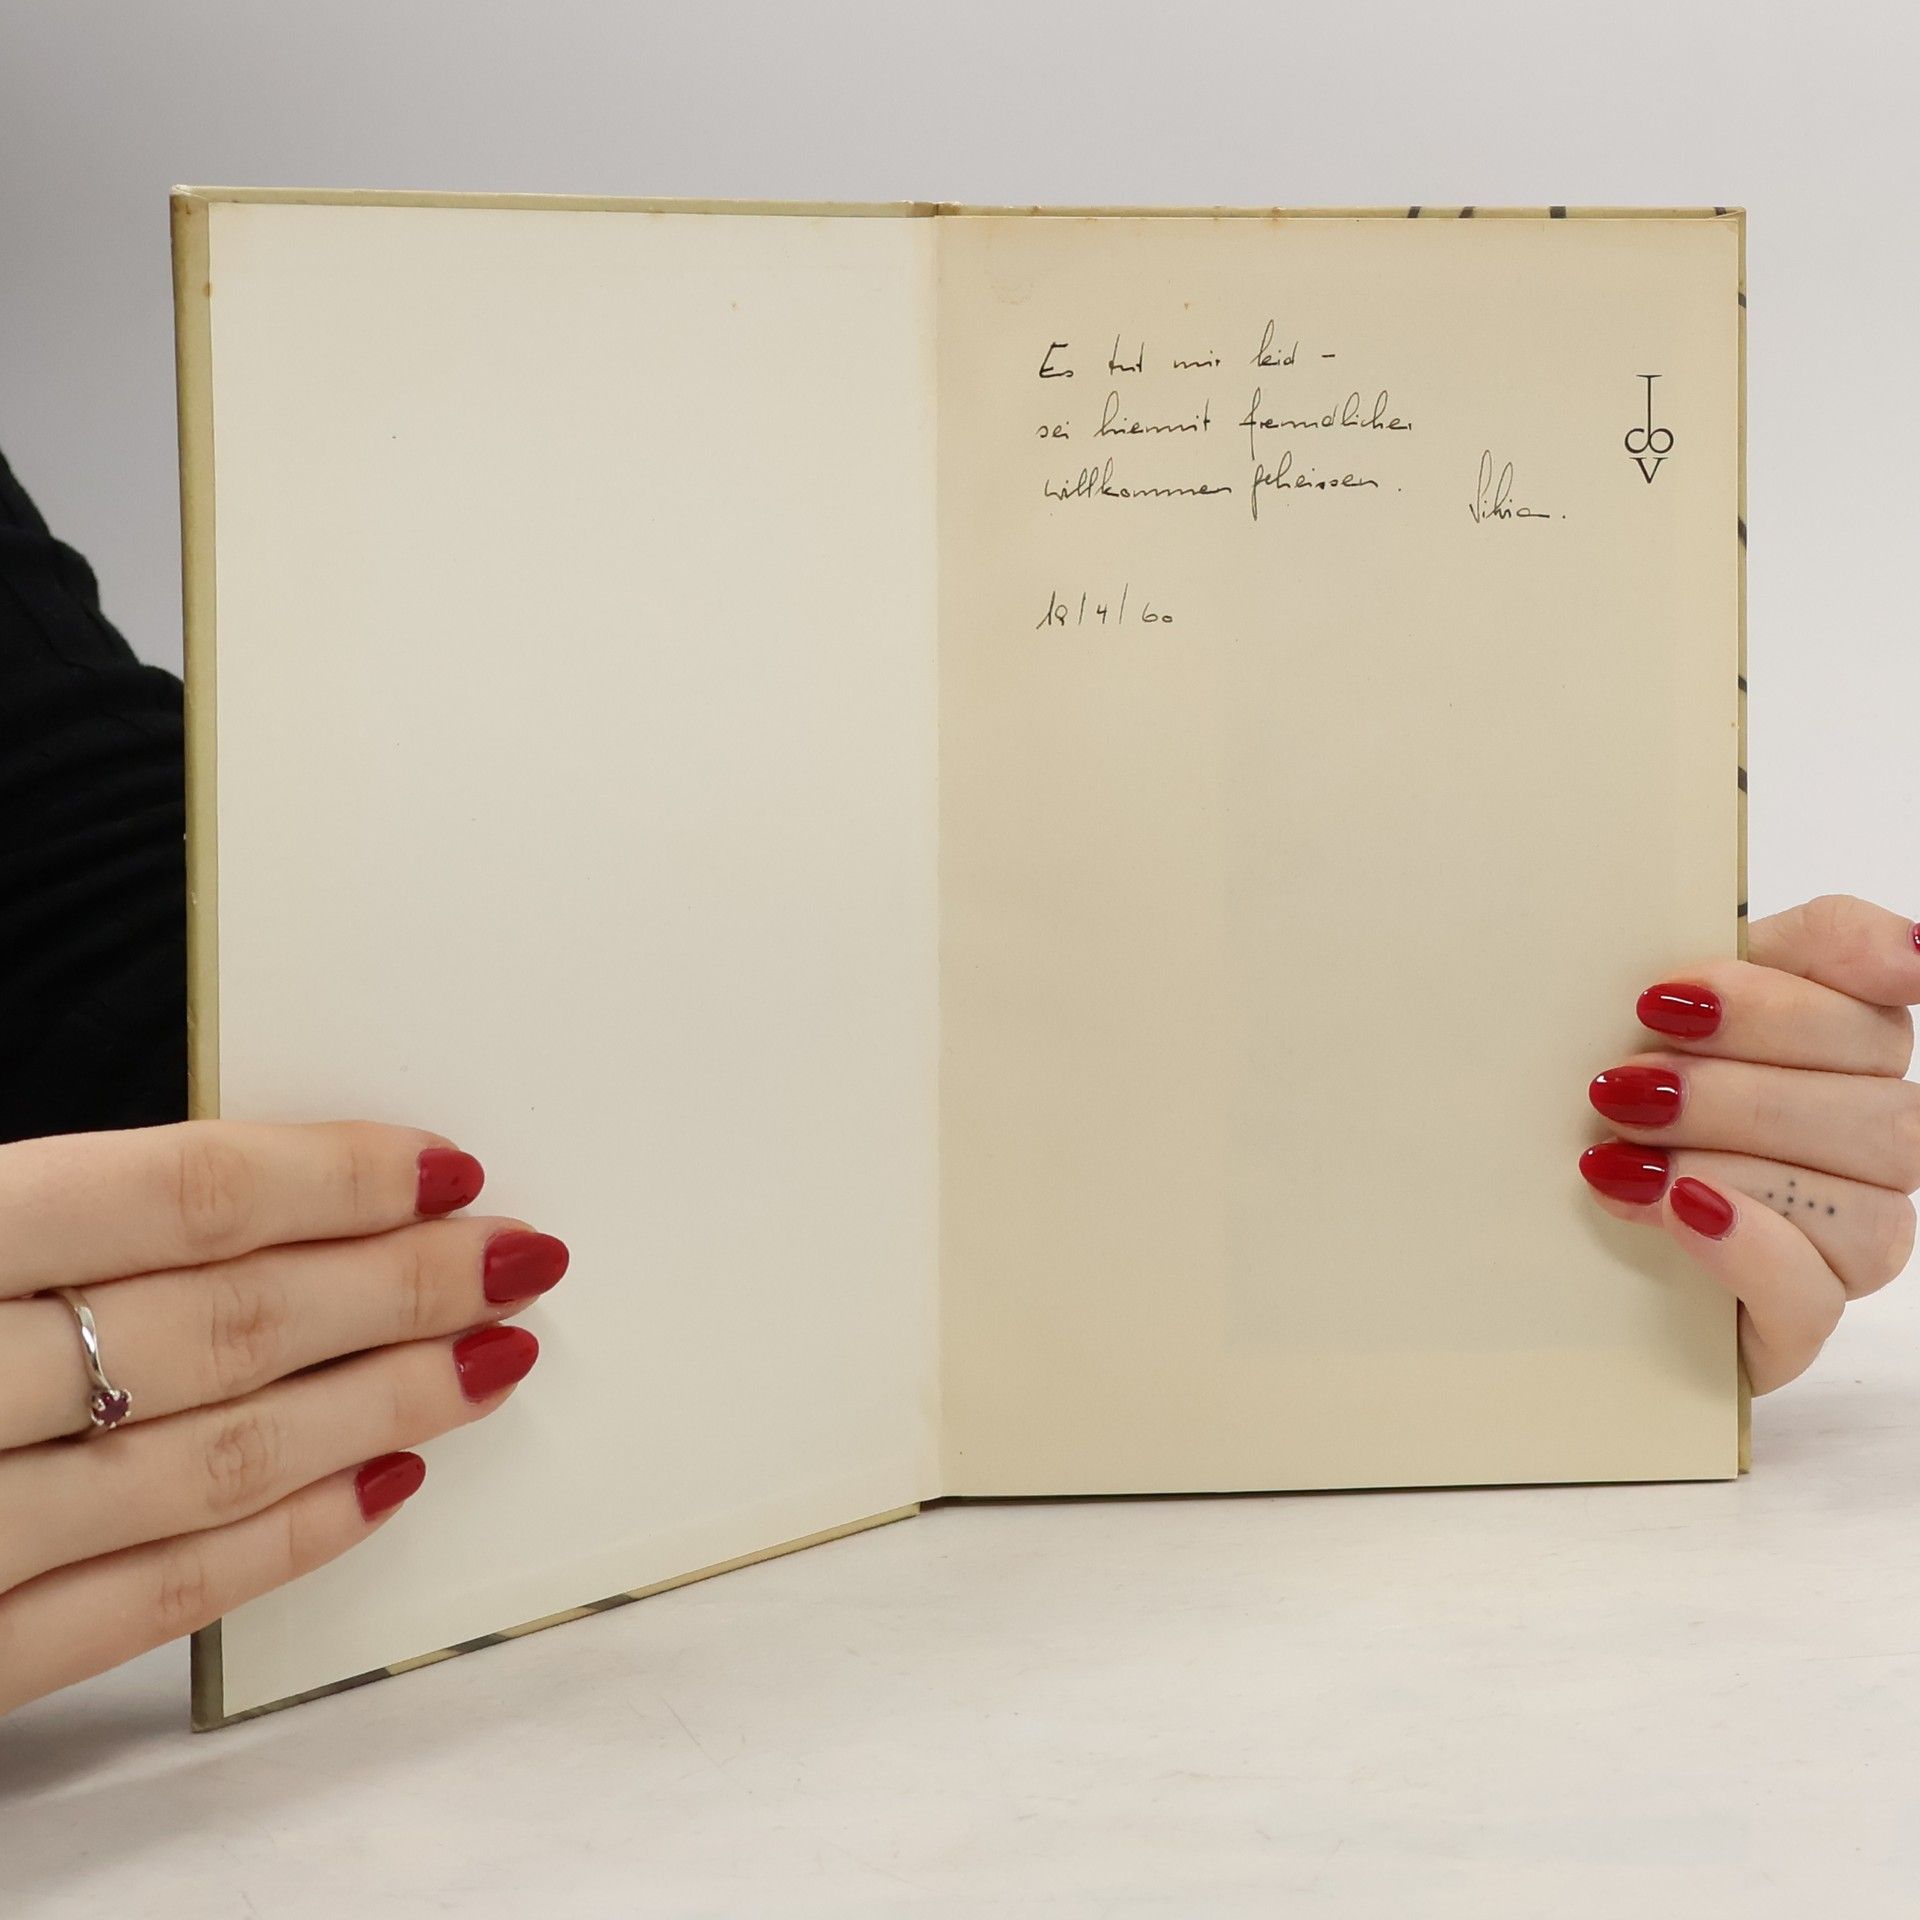 Es tut mir leid -
sei hiermit freundlicher
willkommen geheissen.
Silvia.
18/4/60